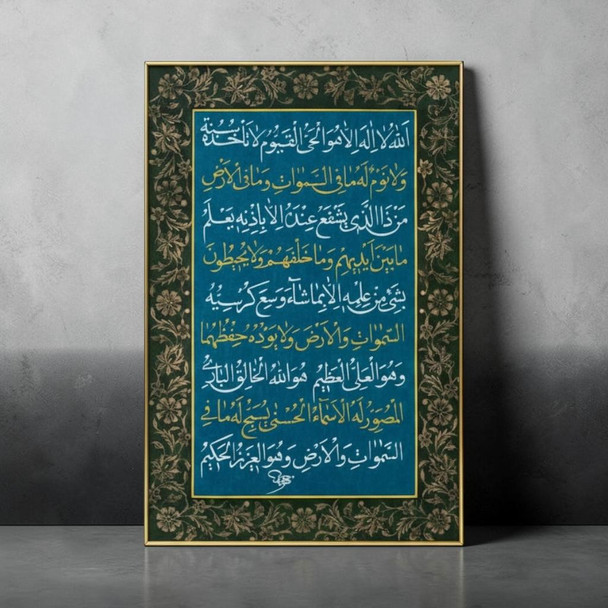 اَللّٰهُ لَا اِلٰهَ اِلَّا هُوَ الْحَيُّ الْقَيُّومُ لَا تَأْخُذُهُ سِنَةٌ
وَلَا نَوْمٌ لَهُ مَا فِي السَّمٰوَاتِ وَمَا فِي الْاَرْضِ
مَنْ ذَا الَّذِي يَشْفَعُ عِنْدَهُ اِلَّا بِاِذْنِهِ يَعْلَمُ
مَا بَيْنَ اَيْدِيهِمْ وَمَا خَلْفَهُمْ وَلَا يُحِيطُونَ
بِشَيْءٍ مِنْ عِلْمِهِ اِلَّا بِمَا شَاءَ وَسِعَ كُرْسِيُّهُ
السَّمٰوَاتِ وَالْاَرْضَ وَلَا يَؤُدُهُ حِفْظُهُمَا
وَهُوَ الْعَلِيُّ الْعَظِيمُ هُوَ اللّٰهُ الْخَالِقُ الْبَارِئُ
الْمُصَوِّرُ لَهُ الْاَسْمَاءُ الْحُسْنٰى يُسَبِّحُ لَهُ مَا فِي
السَّمٰوَاتِ وَالْاَرْضِ وَهُوَ الْعَزِيزُ الْحَكِيمُ